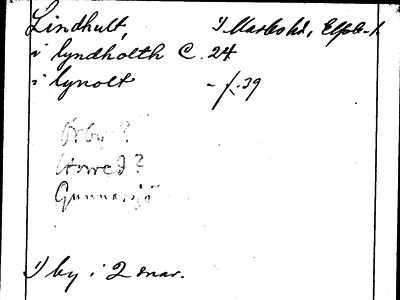 Lindhult, I Marbohd, Elfsb. l.
i lyndholth C. 24
i lynolt - f. 39
Örby ?
Horred ?
Gunnarsjö
1) by i 2 snar.